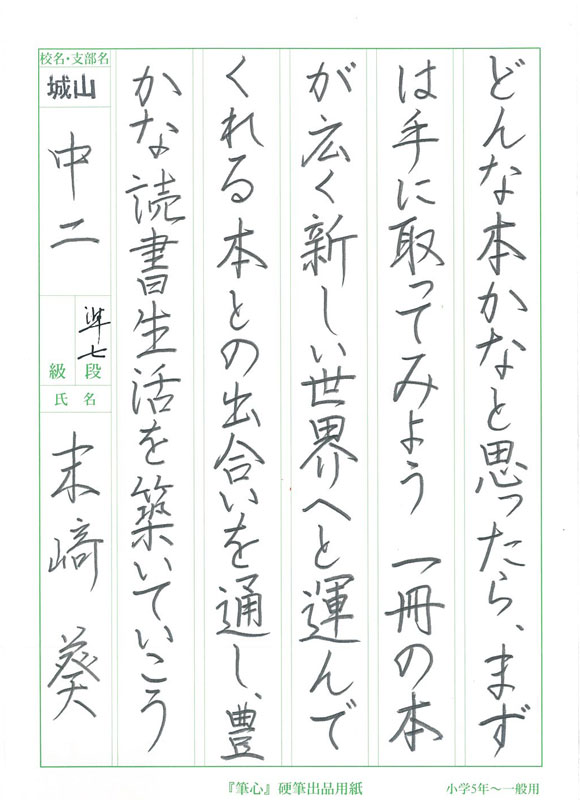 どんな本かなと思ったら、まず
は手に取ってみよう 一冊の本
が広く新しい世界へと運んで
くれる本との出合いを通し、豊
かな読書生活を築いていこう
校名・支部名
城山
中二
準七
段
級
氏名
末崎 葵
『筆心』硬筆出品用紙
小学5年～一般用